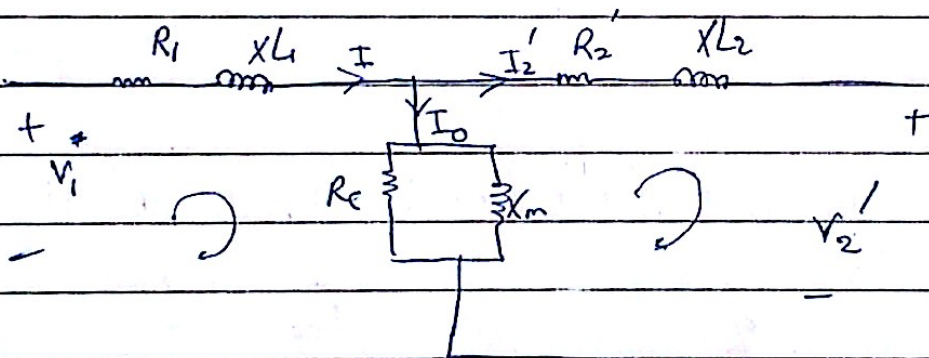 R₁ XL₁ I I₂' R₂' XL₂
I₀
+ +
V₁
Rc Xm
V₂'
- -